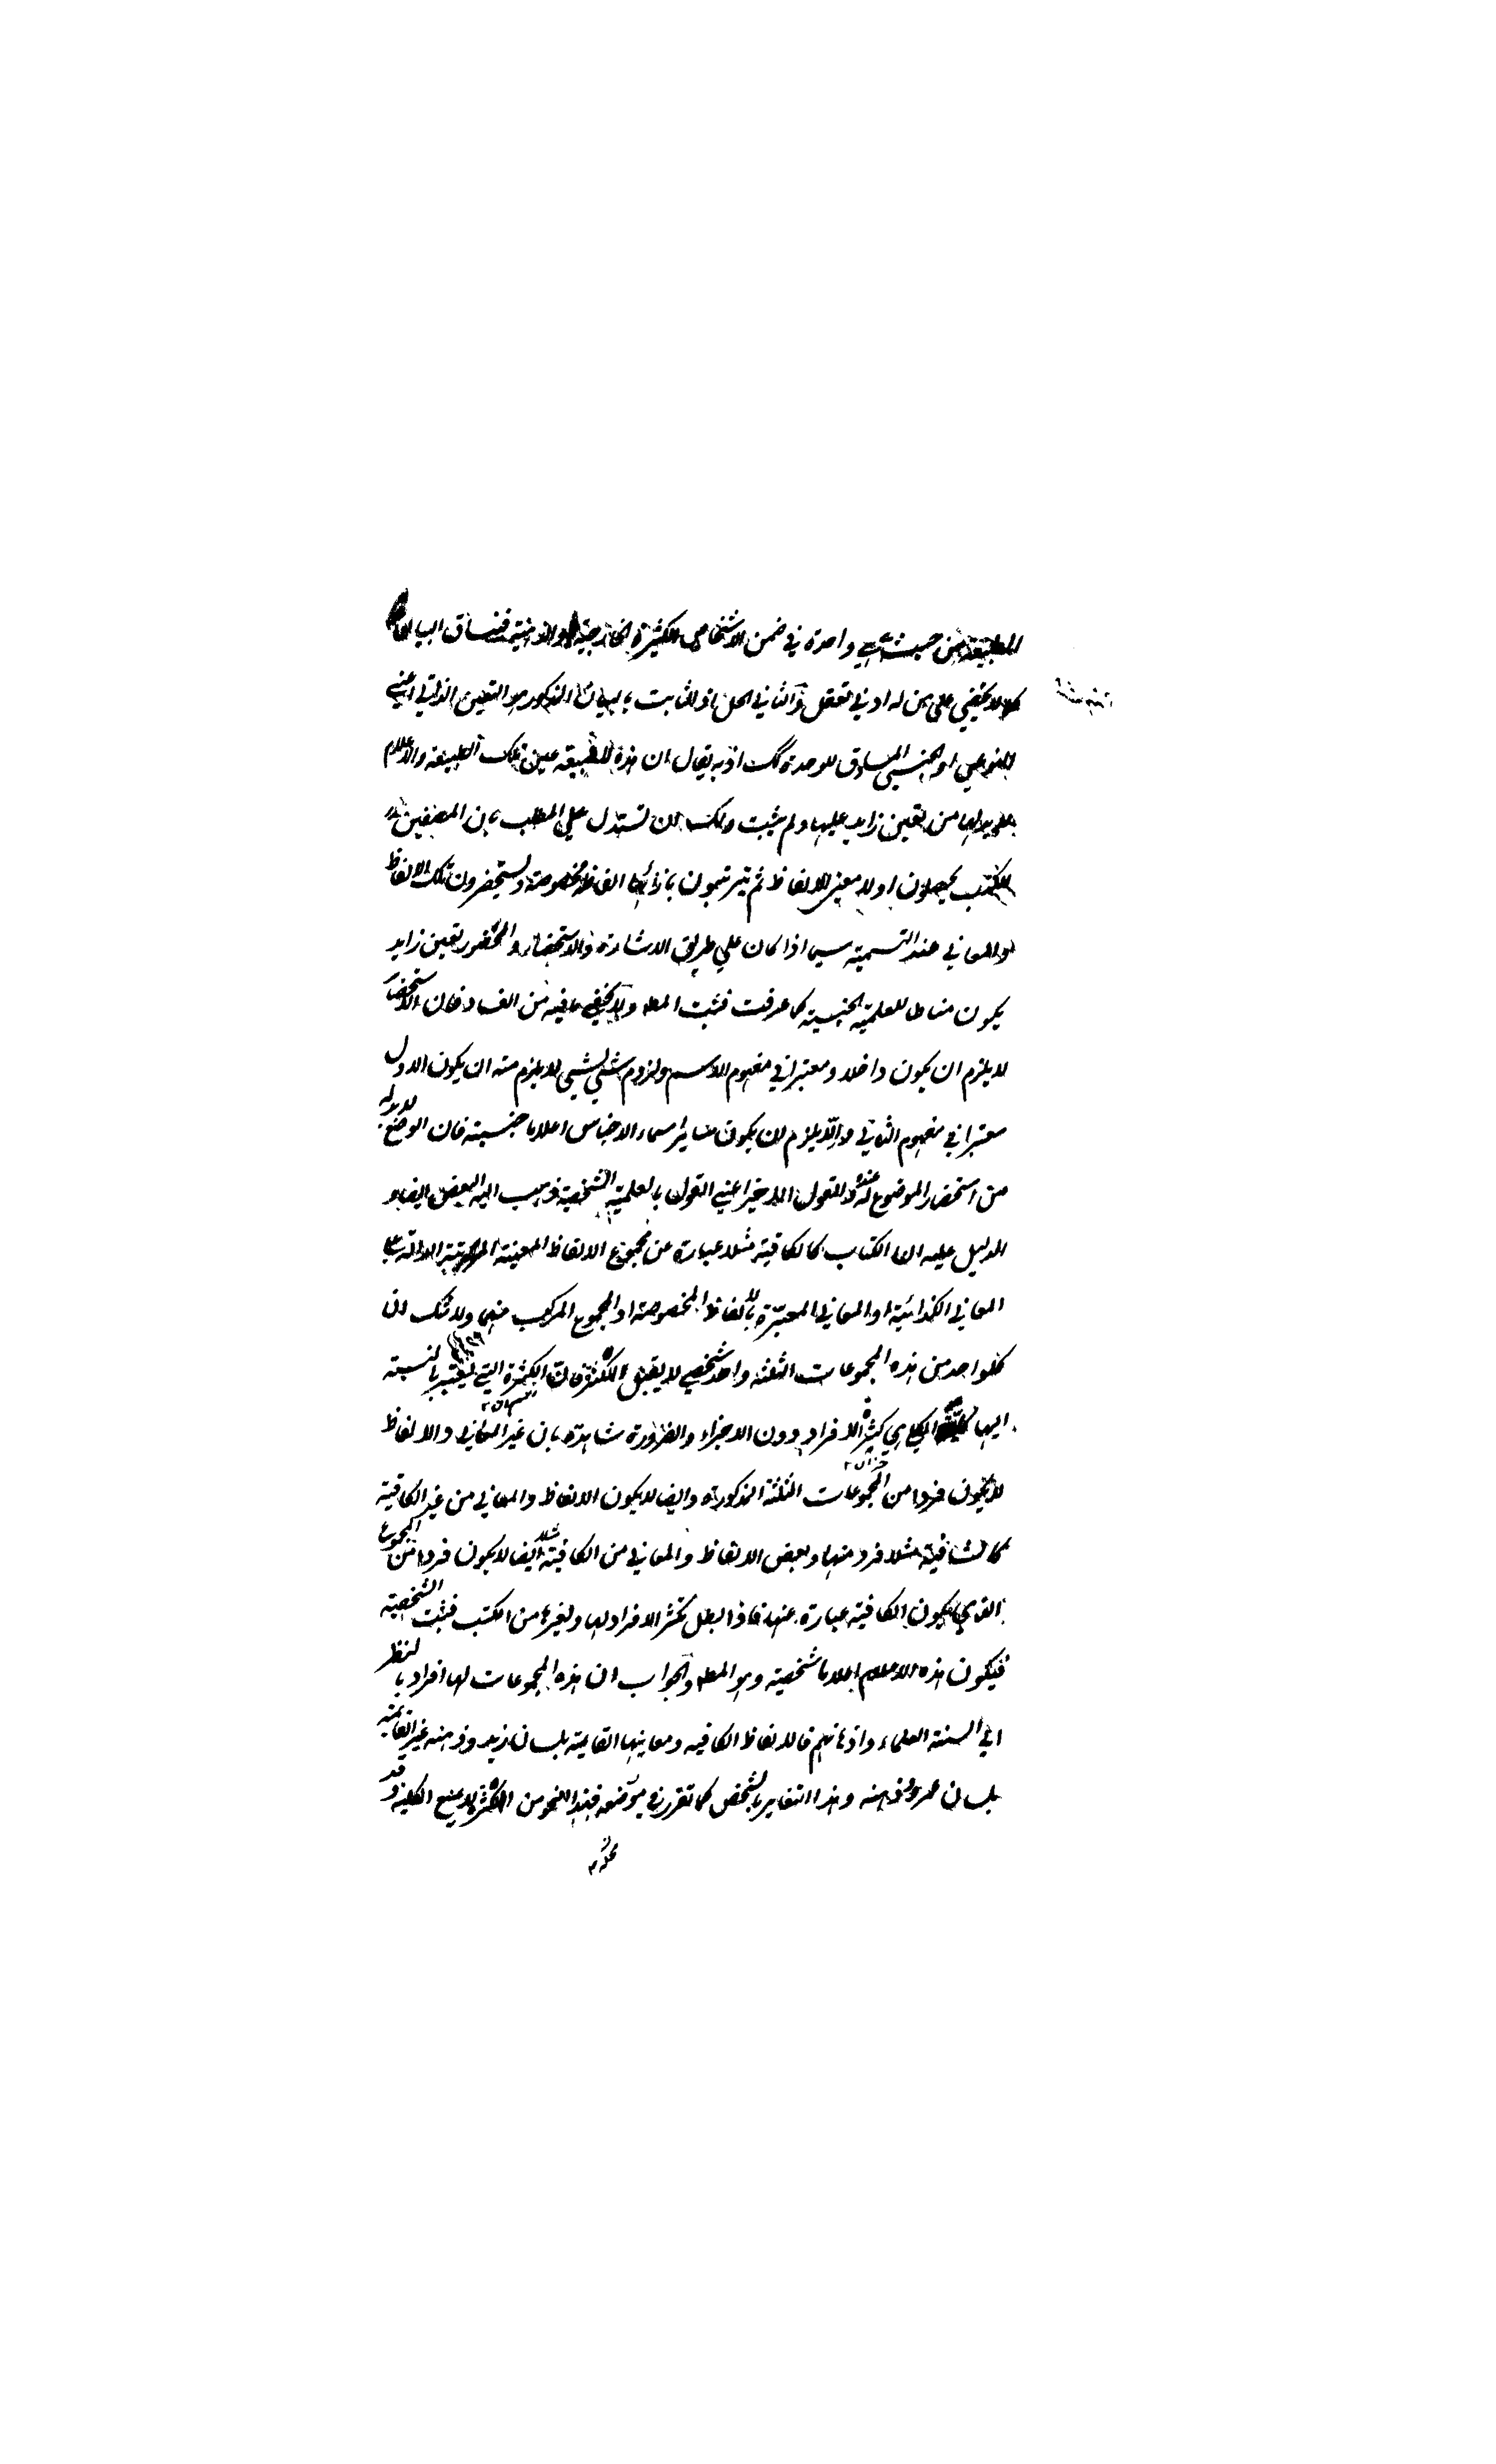 الطبيعة من حيث هي واحدة في ضمن الاشخاص الكثيرة الخارجية والذهنية فينساق البيان
كما لا يخفي علي من له ادني تعقل والثاني الحل اذ الثابت بالبيان المذكور هو التعين الذاتي اعني
النوعي او الجنسي المساوق للوحدة كك اذ به يقال ان هذه الطبيعة عين تلك الطبيعة والاعلام
لا بد لها من تعين زايد عليها ولم يثبت ولك ان تستدل علي المطلب بان المصنفين
للكتب يحصلون اولا معني الالفاظ ثم يرتبون بازائها الفاظا مخصوصة ويستحضرون تلك الالفاظ
او المعاني عند التسمية سيما اذا كان علي طريق الاشارة والاستحضار والحضور تعين زايد
يكون مناطا للعلمية الجنسية كما عرفت فثبت المط ولا يخفي ما فيه من الفساد فان الاستحضار
لا يلزم ان يكون داخلا ومعتبرا في مفهوم الاسم ولزوم شي لشي لا يلزم منه ان يكون الاول
معتبرا في مفهوم الثاني والا يلزم ان يكون ساير اسماء الاجناس اعلاما جنسية فان الوضع لا بد له
من استحضار الموضوع له عنده والقول الاخير اعني القول بالعلمية الشخصية ذهب اليه البعض ايضا و
الدليل عليه ان الكتاب كالكافية مثلا عبارة عن مجموع الالفاظ المعينة المرتبة الدالة علي
المعاني الكذائية او المعاني المعبرة بالالفاظ المخصوصة او المجموع المركب منهما ولا شك ان
كلواحد من هذه المجموعات الثلثة واحد شخصي لا يقبل الكثرة فان الكثرة التي يعتبر بالنسبة
اليها الكلي هي كثرة الافراد دون الاجزاء والضرورة شاهدة بان غير المعاني والالفاظ
لا يكون فردا من المجموعات الثلثة المذكورة وايضا لا يكون الالفاظ والمعاني من غير الكافية
كالشافية مثلا فرد منها وبعض الالفاظ والمعاني من الكافية مثلا ايضا لا يكون فردا من المجموع
الذي يكون الكافية عبارة عنها فاذا بطل تكثر الافراد لها ولغيرها من الكتب فثبت الشخصية
فيكون هذه الاعلام اعلاما شخصية وهو المط والجواب ان هذه المجموعات لها افراد بالنظر
الي السنة العلماء واذهانهم فالالفاظ الكافية ومعانيها القايمة بلسان زيد وذهنه غير القايمة
بلسان عمرو وذهنه وهذا التغاير بالشخص كما تقرر في موضعه فهذا النحو من الكثرة لا يمنع الكلية وقد